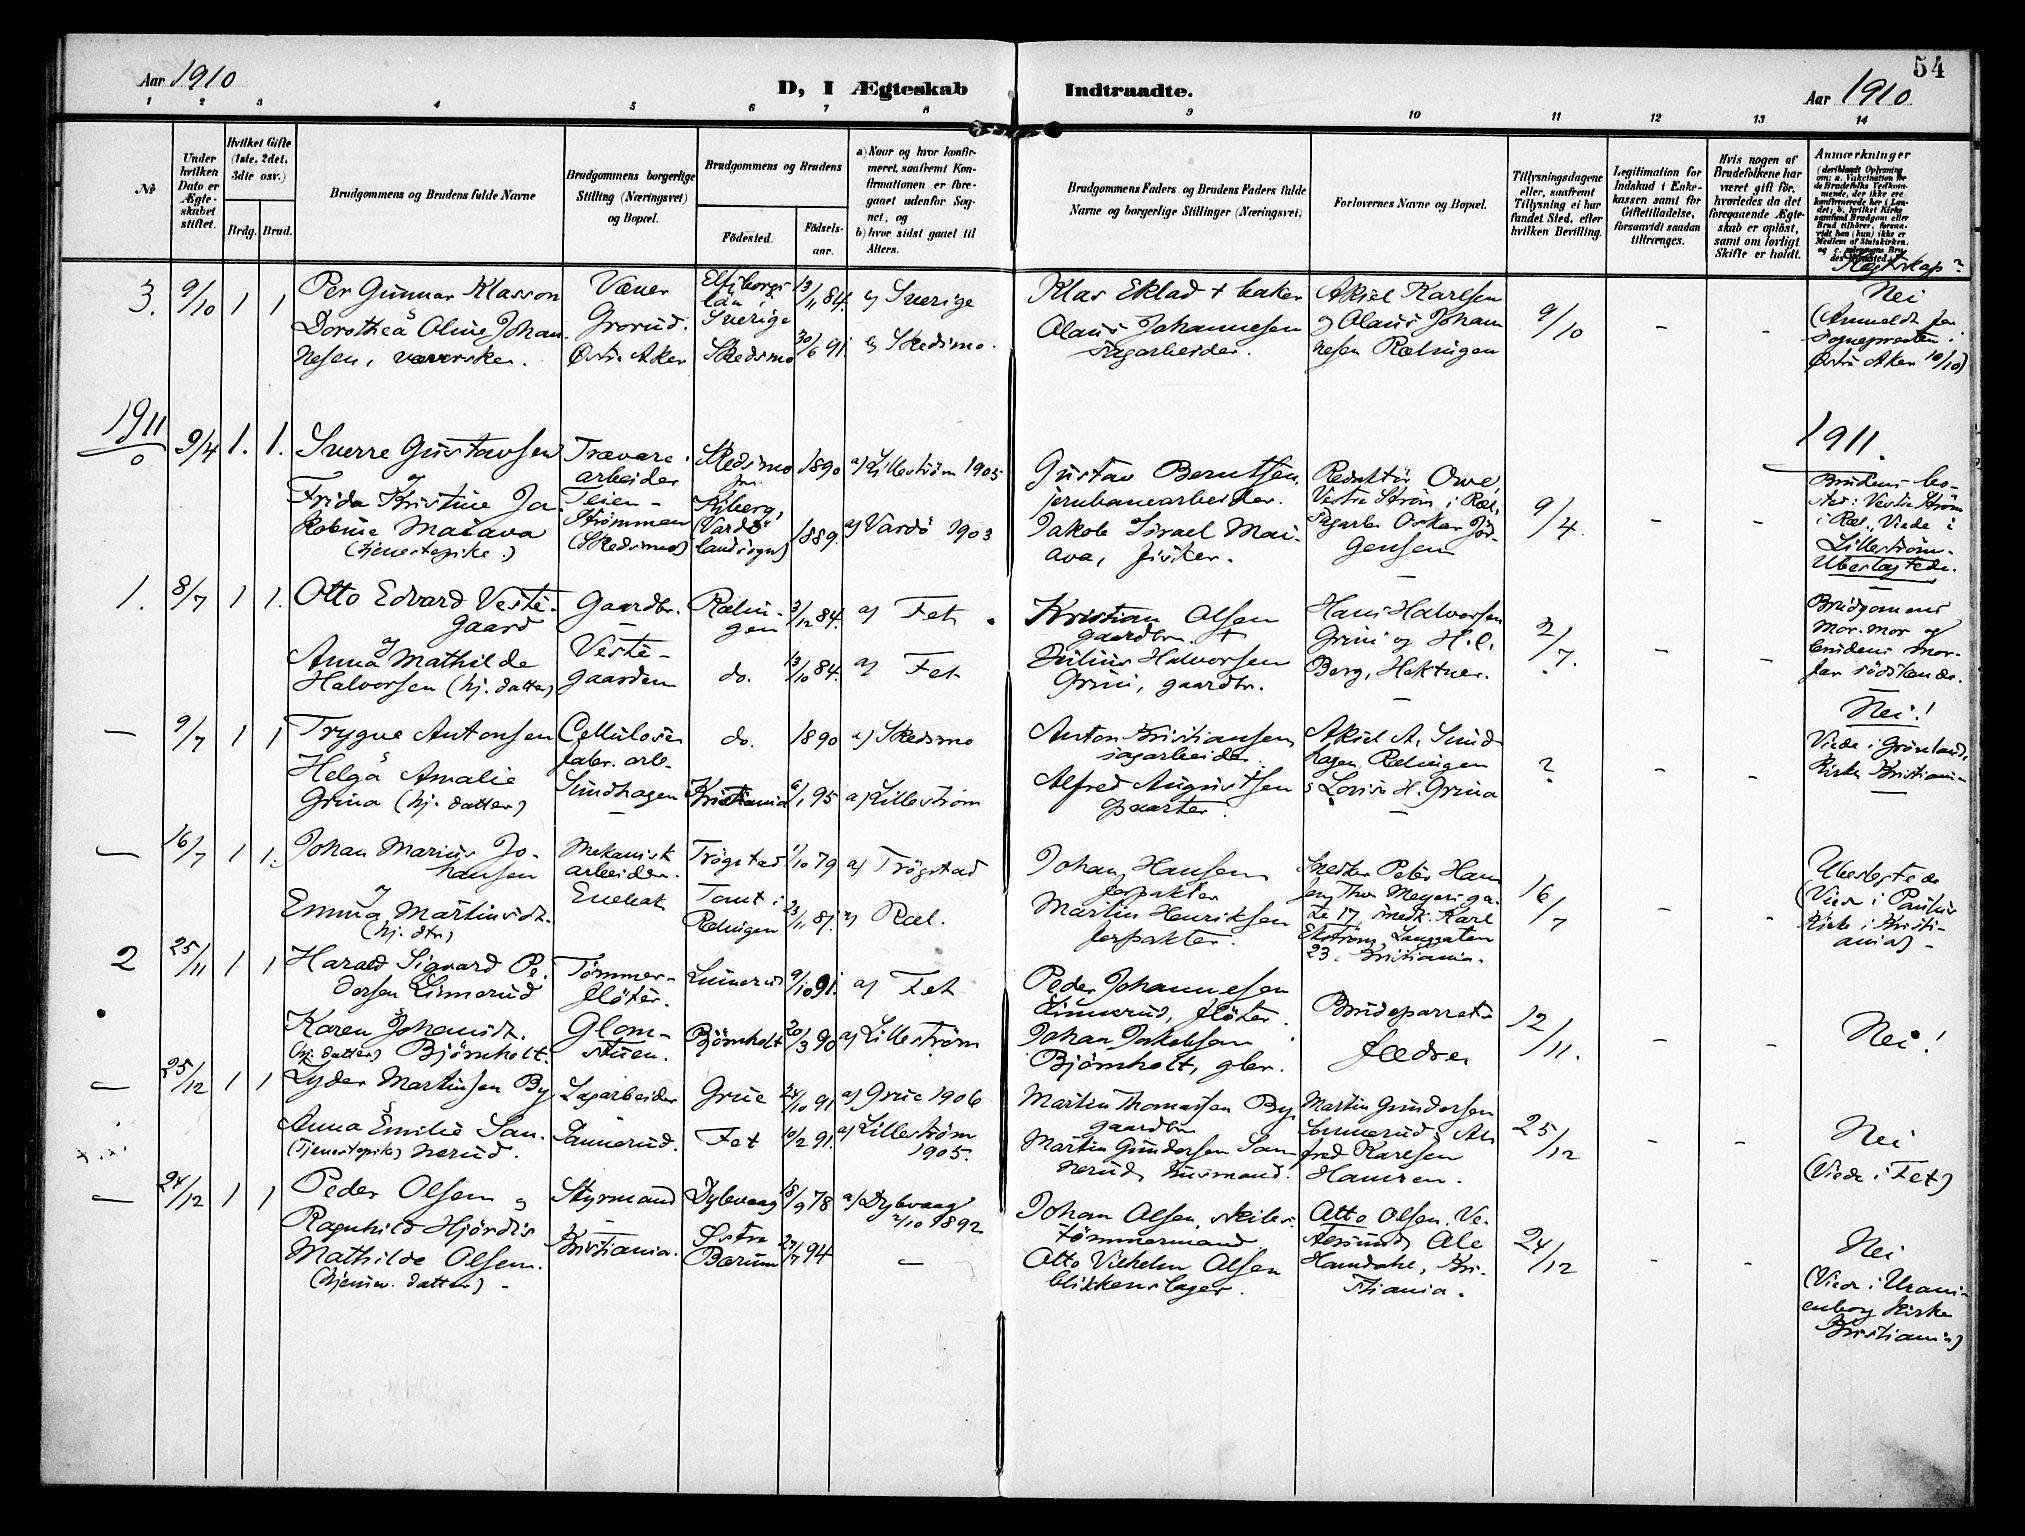 54
Aar 1910
D, I Ægteskab Indtraadte.
Aar 1910
1 2 3 4 5 6 7 8 9 10 11 12 13 14
No
Under hvilken Dato er Ægteskabet stiftet.
Hvilket Gifte (1ste, 2det, 3die osv.)
Brdg. Brud.
Brudgommens og Brudens fulde Navne
Brudgommens borgerlige Stilling (Næringsvei) og Bopæl.
Brudgommens og Brudens
Fødested.
Fødselsaar.
a) Naar og hvor konfirmeret, saafremt Konfirmationen er foregaaet udenfor Sognet, og
b) hvor sidst gaaet til Alters.
Brudgommens Faders og Brudens Faders fulde Navne og borgerlige Stillinger (Næringsvei)
Forlovernes Navne og Bopæl.
Tillysningsdagene eller, saafremt Tillysning ei har fundet Sted, efter hvilken Bevilling.
Legitimation for Indskud i Enkekassen samt for Giftetilladelse, forsaavidt saadan tiltrænges.
Hvis nogen af Brudefolkene har været gift før, hvorledes da det foregaaende Ægteskab er opløst, samt om lovligt Skifte er holdt.
Anmærkninger
Slegtskap?
3. 9/10 1 1 Per Gunnar Klasson
Dorothea Oline Johannesen, væverske.
Væver
Grorud.
Østre Aker
Elfsborgs län i Sverige 13/11 84. a) Sverige
Skedsmo 30/6 91. a) Skedsmo.
Klas Eklad + baker
Olaus Johannesen
sagarbeider.
Aksel Karlsen
og Olaus Johannesen Rælingen
9/10 - -
Nei
(Anmeldt for
Sognepresten i
Østre Aker 10/10)
1911
0 9/4 1. 1. Sverre Gustavsen
og
Frida Kristine Jakobine Maiava
(tjenestepike.)
Trævarearbeider
Strømmen
(Skedsmo)
Skedsmo 1890 a) Lillestrøm 1905
Kiberg, (Vardø landsogn) 1889. a) Vardø 1903
Gustav Berntsen,
jernbanearbeider.
Jakob Israel Maiava, fisker.
Redaktör Owe,
Vestre Strøm i Ræl.
Sagarb. Oskar Jörgensen
9/4. - -
1911.
Brudens bosted: Vestre Strøm
i Ræl. Viede i
Lillestrøm.
Ubeslegtede.
1. 8/7 1 1. Otto Edvard Vestegaard
og
Anna Mathilde
Halvorsen (hj. datter)
Gaardbr.
Vestegaarden
Rælingen 3/12 84. a) Fet
do. 13/10 84. a) Fet
Kristian Olsen
gaardbr. +
Julius Halvorsen
Grini, gaardbr.
Hans Halvorsen
Grini og H. C.
Berg, Hektner.
2/7. - -
Brudgomens
mor.mor og
brudens morfar södskende.
- 9/7 1 1 Trygve Antonsen
Helga Amalie
Grina (hj. datter)
Cellulosefabr. arb.
Sundhagen
do. 1890 a) Skedsmo
Kristiania 6/1 95 a) Lillestrøm
Anton Kristiansen
sagarbeider.
Alfred Augustsen
Aksel A. Sundhagen, Rælingen
Lovise H. Grina
? - -
Nei!
Viede i Grønlands
Kirke Kristiania
- 16/7 1 1. Johan Marius Johansen
og
Emma Martinsdt.
(hj. dtr.)
Mekanisk
arbeider.
Enebak
Trögstad 1/10 79 a) Trögstad
Tomt i
Rælingen 23/11 87. a) Ræl.
Johan Hansen
forpakter
Martin Henriksen
forpakter.
Snedker Peter Hansen, Thor Meyers gate 17, smed. Karl
Ekström, Langgaten
23. Kristiania.
16/7 - -
Ubeslegtede
(Viede i Paulus
Kirke i Kristiania)
2 25/11 1 1 Harald Sigvard Pedersen Linnerud
Karen Johansdt.
(hj. datter) Bjørnholt.
Tømmerfløter.
Glomstuen.
Linnerud 9/10 91. a) Fet
Bjørnholt 20/3 90 a) Lillestrøm
Peder Johannesen
Linnerud, fløter.
Johan Jakobsen
Bjørnholt, gbr.
Brudeparrets
fædre
12/11. - -
Nei!
- 25/12 1 1 Lyder Martinsen By
Anna Emilie Sannerud.
(Tjenestepike)
Sagarbeider
Sannerud.
Grue 24/10 91 a) Grue 1906
Fet 10/2 91. a) Lillestrøm
1905.
Martin Thomassen By
gaardbr
Martin Gundersen Sannerud, husmand.
Martin Gundersen
Sannerud, Alfred Karlsen
Hansen.
25/12 - -
Nei
(Viede i Fet)
- 24/12 1 1 Peder Olsen og
Ragnhild Hjördis
Mathilde Olsen.
(hjemmev. datter) -
Styrmand
Kristiania.
Dybvaag 18/9 78 a) Dybvaag
2/10 1892
Østre
Bærum 27/7 94 -
Johan Olsen, skibstömmermand
Otto Vilhelm Olsen
blikkenslager.
Otto Olsen,
Hamdahl, Kristiania.
24/12 - -
Nei
(Viede i Uranienborg Kirke
Kristiania)